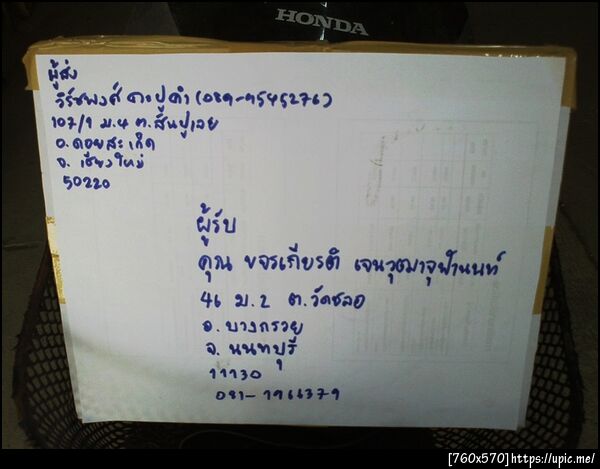 HONDA
ผู้ส่ง
วิรัชพงศ์ กะปูคำ (089-9545276)
107/1 ม.4 ต.สันปูเลย
อ.ดอยสะเก็ด
จ. เชียงใหม่
50220
ผู้รับ
คุณ ขจรเกียรติ เจนวุฒาจุฬานนท์
46 ม.2 ต.วัดชลอ
อ.บางกรวย
จ.นนทบุรี
11130
081-
[760x570]https://upic.me/